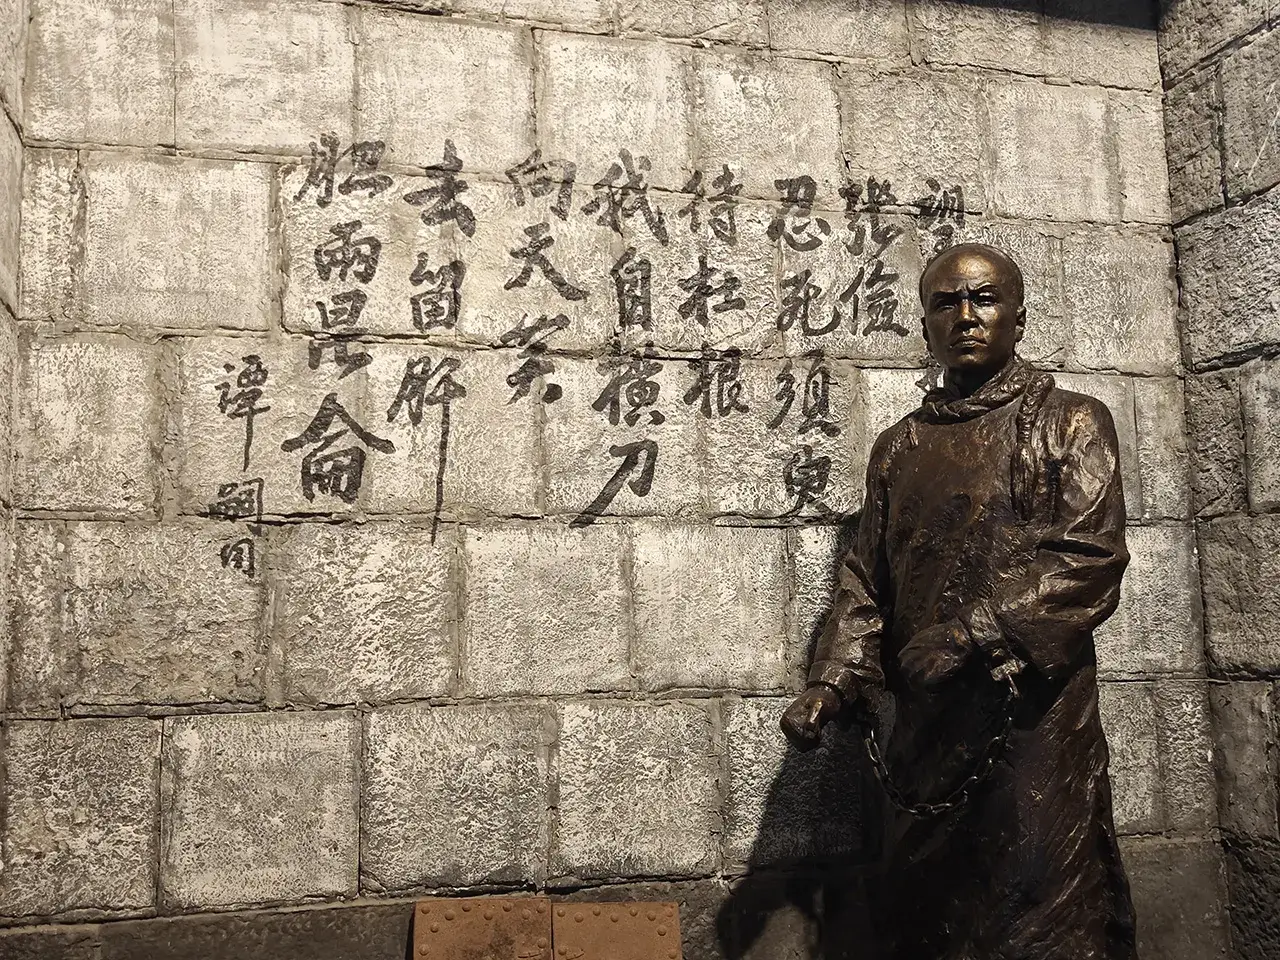 望
張儉
忍死須臾
待杜根
我自橫刀
向天笑
去留肝
胆兩昆侖
譚嗣同